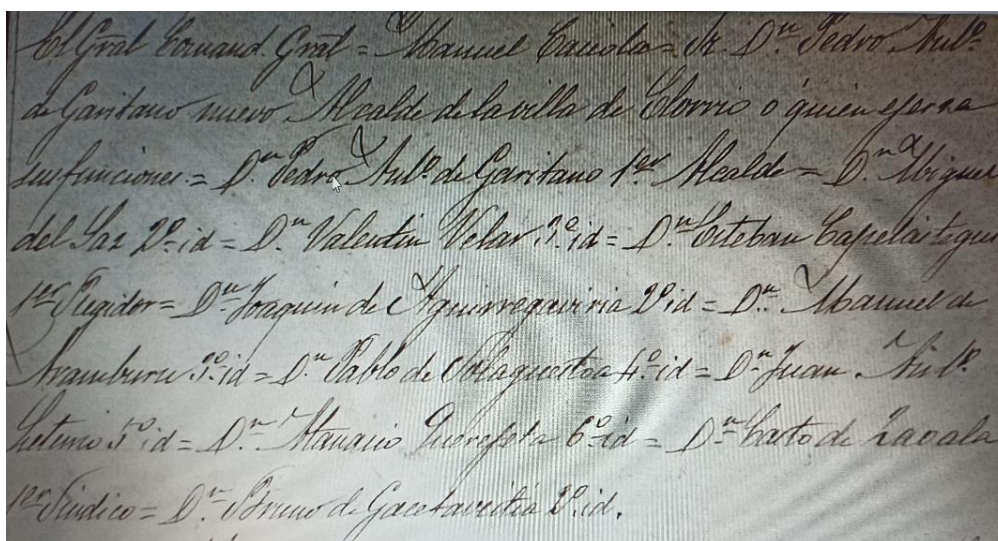 El Gral Comand. Gral = Manuel Cassola = Sr. D.n Pedro Ant.o
de Garitano nuevo Alcalde de la villa de Elorrio o quien ejerza
sus funciones = D.n Pedro Ant.o de Garitano 1.er Alcalde = D.n Miguel
del Saz 2.o id = D.n Valentin Velar 3.o id = D.n Esteban Capelastegui
1.er Regidor = D.n Joaquin de Aguirregaviria 2.o id = D.n Manuel de
Aramburu 3.o id = D.n Pablo de Olagüestoa 4.o id = D.n Juan Ant.o
5.o id = D.n Atanasio Querejeta 6.o id = D.n Casto de Zavala
1.er Sindico = D.n Bruno de Gaceta 2.o id.